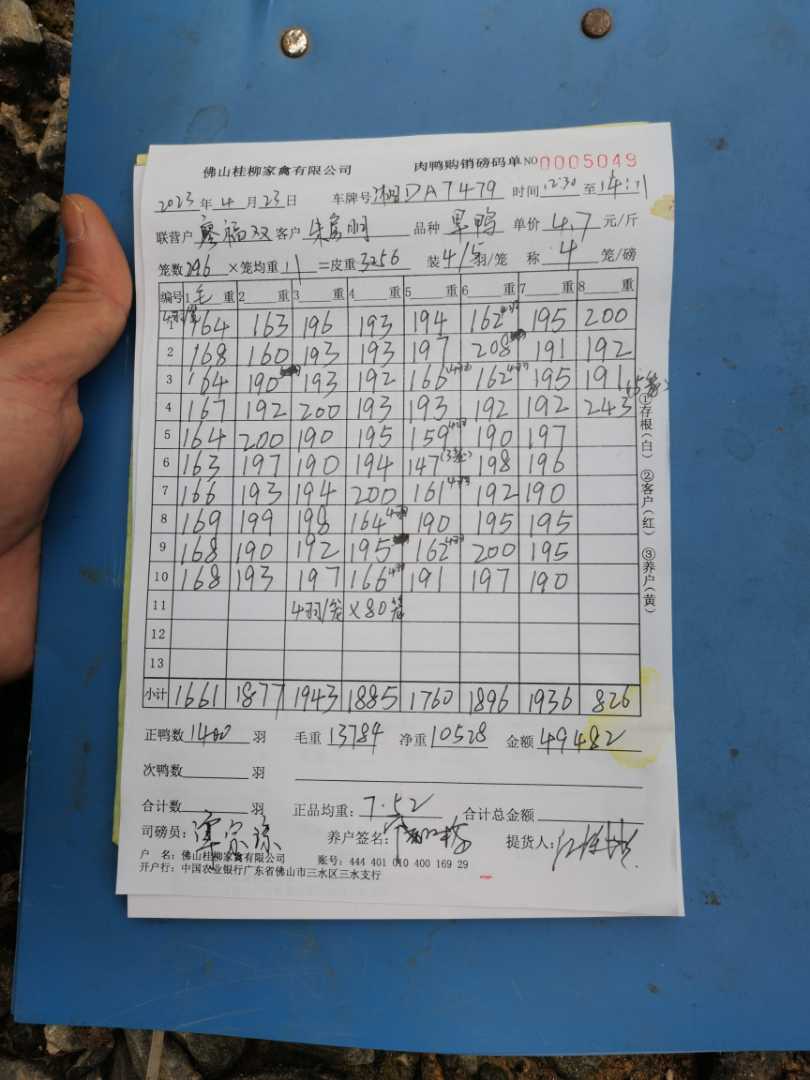 佛山桂柳家禽有限公司 肉鸭购销磅码单 NO 0005049
2023年4月23日 车牌号 湘DA7479 时间 12:30 至 14:11
联营户 廖福双 客户 品种 旱鸭 单价 4.7 元/斤
笼数 296 ×笼均重 11 =皮重 3256 装 4/5 羽/笼 称 4 笼/磅
编号 1 毛 重 2 重 3 重 4 重 5 重 6 重 7 重 8 重
1 164 163 196 193 194 162 195 200
2 168 160 193 193 197 208 191 192
3 164 190 193 192 166 162 195 191
4 167 192 200 193 193 192 192 243 (5笼)
5 164 200 190 195 159 190 197
6 163 197 190 194 147 (3笼) 198 196
7 166 193 194 200 161 192 190
8 169 199 198 164 190 195 195
9 168 190 192 195 162 200 195
10 168 193 197 166 191 197 190
11 4羽/笼 ×80笼
12
13
小计 1661 1877 1943 1885 1760 1896 1936 826
正鸭数 1400 羽 毛重 13784 净重 10528 金额 49482
次鸭数 羽
合计数 羽 正品均重: 7.52 合计总金额
司磅员: 养户签名: 提货人:
户 名:佛山桂柳家禽有限公司 账号:444 401 010 400 169 29
开户行:中国农业银行广东省佛山市三水区三水支行
①存根(白) ②客户(红) ③养户(黄)